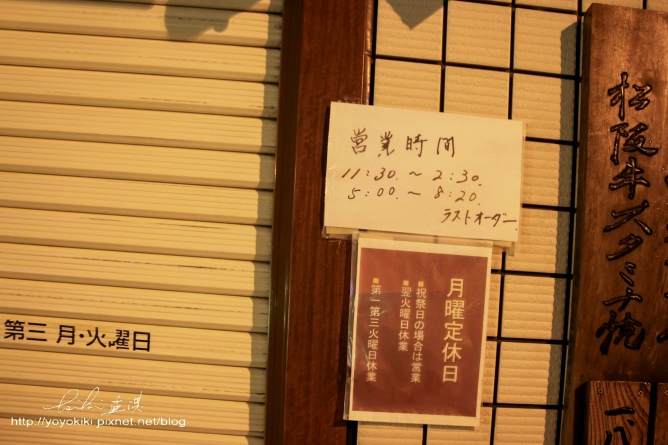 営業時間
11:30.～2:30.
5:00.～8:20.
ラストオーダー
月曜定休日
■祝祭日の場合は営業
■翌火曜日休業
■第一第三火曜日休業
松阪牛スタミナ焼
第三 月・火曜日
http://yoyokiki.pixnet.net/blog